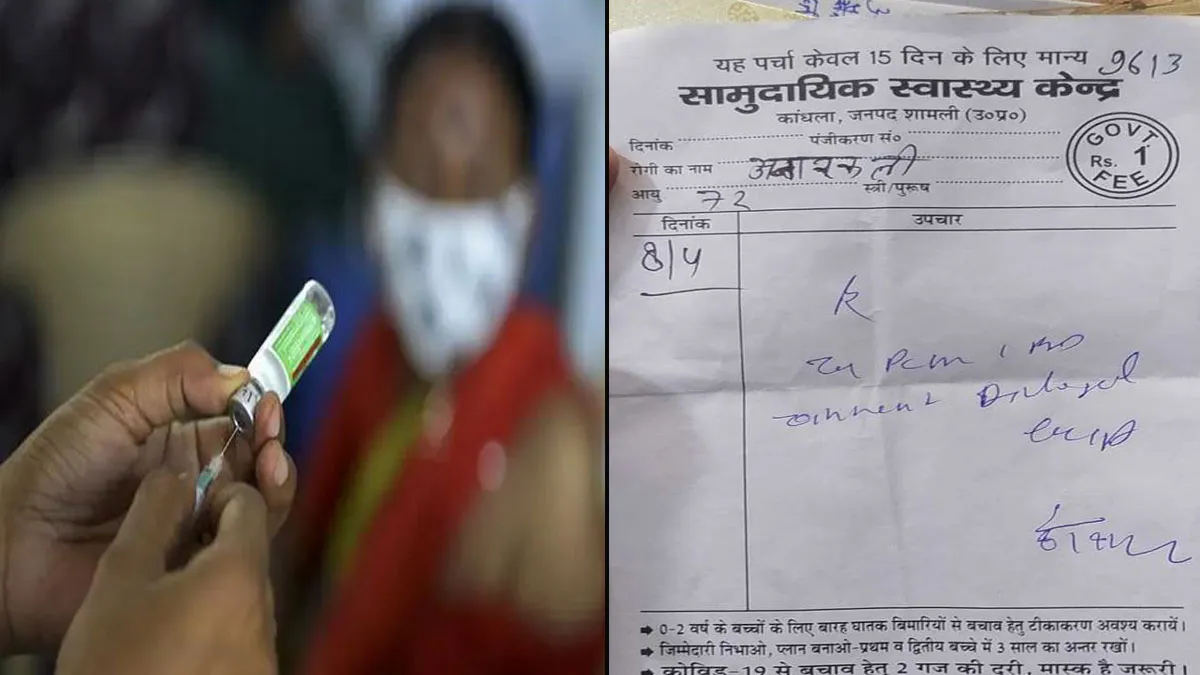 यह पर्चा केवल 15 दिन के लिए मान्य 9613
सामुदायिक स्वास्थ्य केन्द्र
कांधला, जनपद शामली (उ०प्र०)
दिनांक पंजीकरण सं०
रोगी का नाम अनारकली
आयु 72 स्त्री/पुरूष
GOVT
Rs. 1
FEE
दिनांक उपचार
8/4
➡ 0-2 वर्ष के बच्चों के लिए बारह घातक बिमारियों से बचाव हेतु टीकाकरण अवश्य करायें।
➡ जिम्मेदारी निभाओ, प्लान बनाओ-प्रथम व द्वितीय बच्चे में 3 साल का अन्तर रखों।
➡ कोविड-19 से बचाव हेतु 2 गज की दूरी, मास्क है जरूरी।